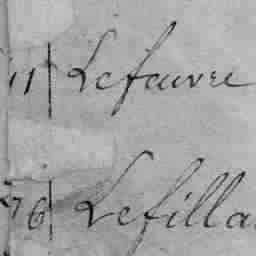 11 Lefeuvre
76 Lefilla